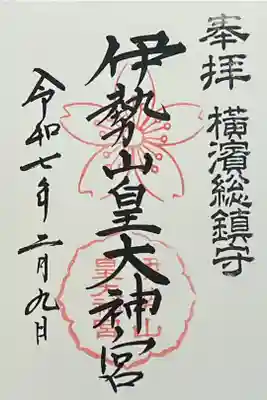 奉拝 横濱総鎮守
伊勢山皇大神宮
令和七年二月九日